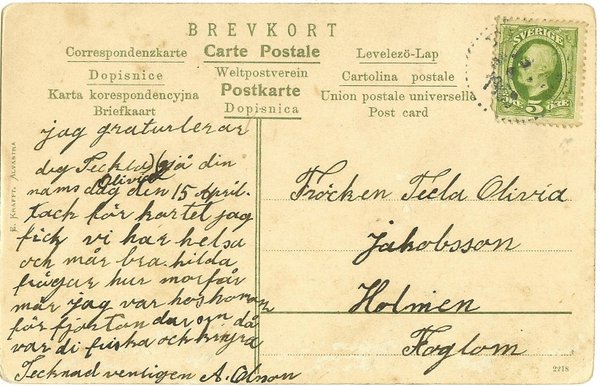 BREVKORT
Correspondenzkarte Carte Postale Levelezö-Lap
Dopisnice Weltpostverein Cartolina postale
Karta korespondencyjna Postkarte Union postale universelle
Briefkaart Dopisnica Post card
SVERIGE
5 ÖRE
E. KRAFFT, ALFVESTA
jag graturlerar
dig Teckla på din
Olivia
namsdag den 15 April.
tack för kortet jag
fick vi har helsa
och mår bra. hilda
frågar hur morfar
mår jag var hos honom
för fjorton dar sen då
var di friska och kryga
Tecknad venligen A. Olson
Fröcken Tecla Olivia
Jakobsson
Holmen
Foglom
2218